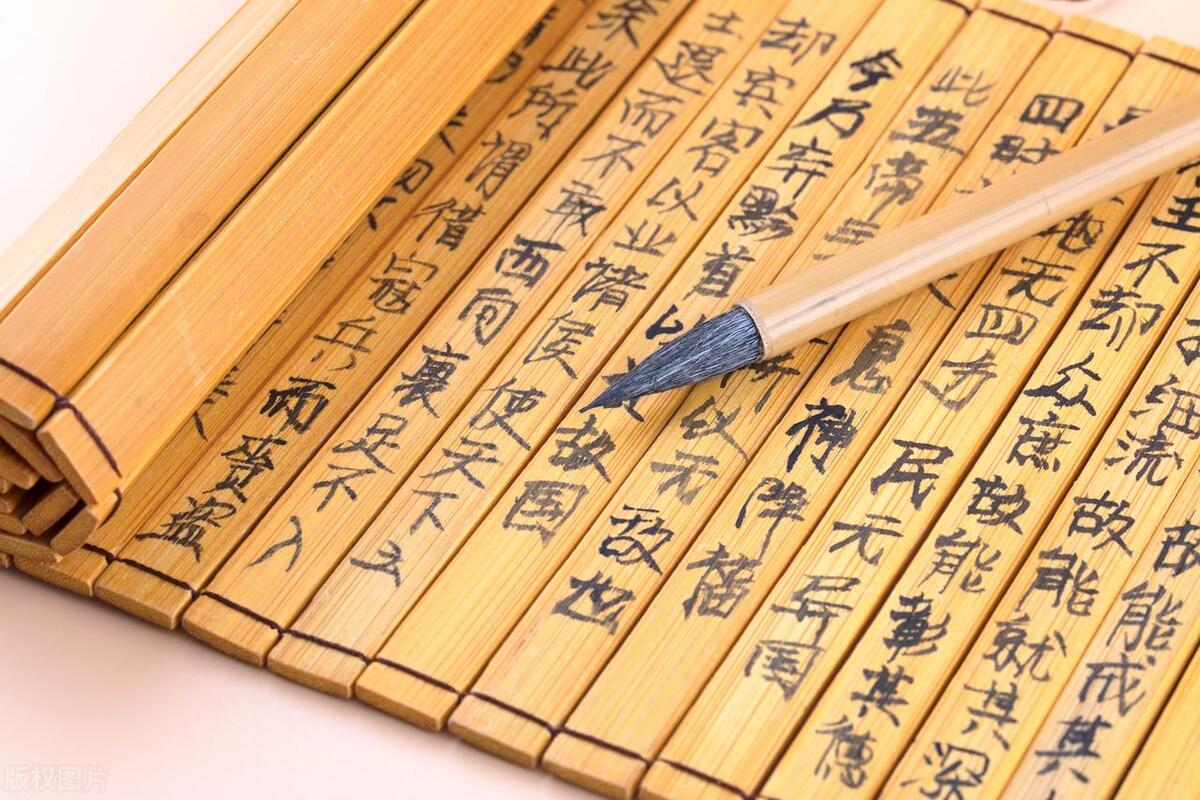 故能成其
细流故能就其深
不却众庶故能彰其德
地无四方民无异国
四时神降
此五帝三以无敌也
今乃弃黔首以故国
却宾客以业诸侯使天下之
士退而不敢西向裹足不入
秦此所谓借寇兵而赍盗
版权图片